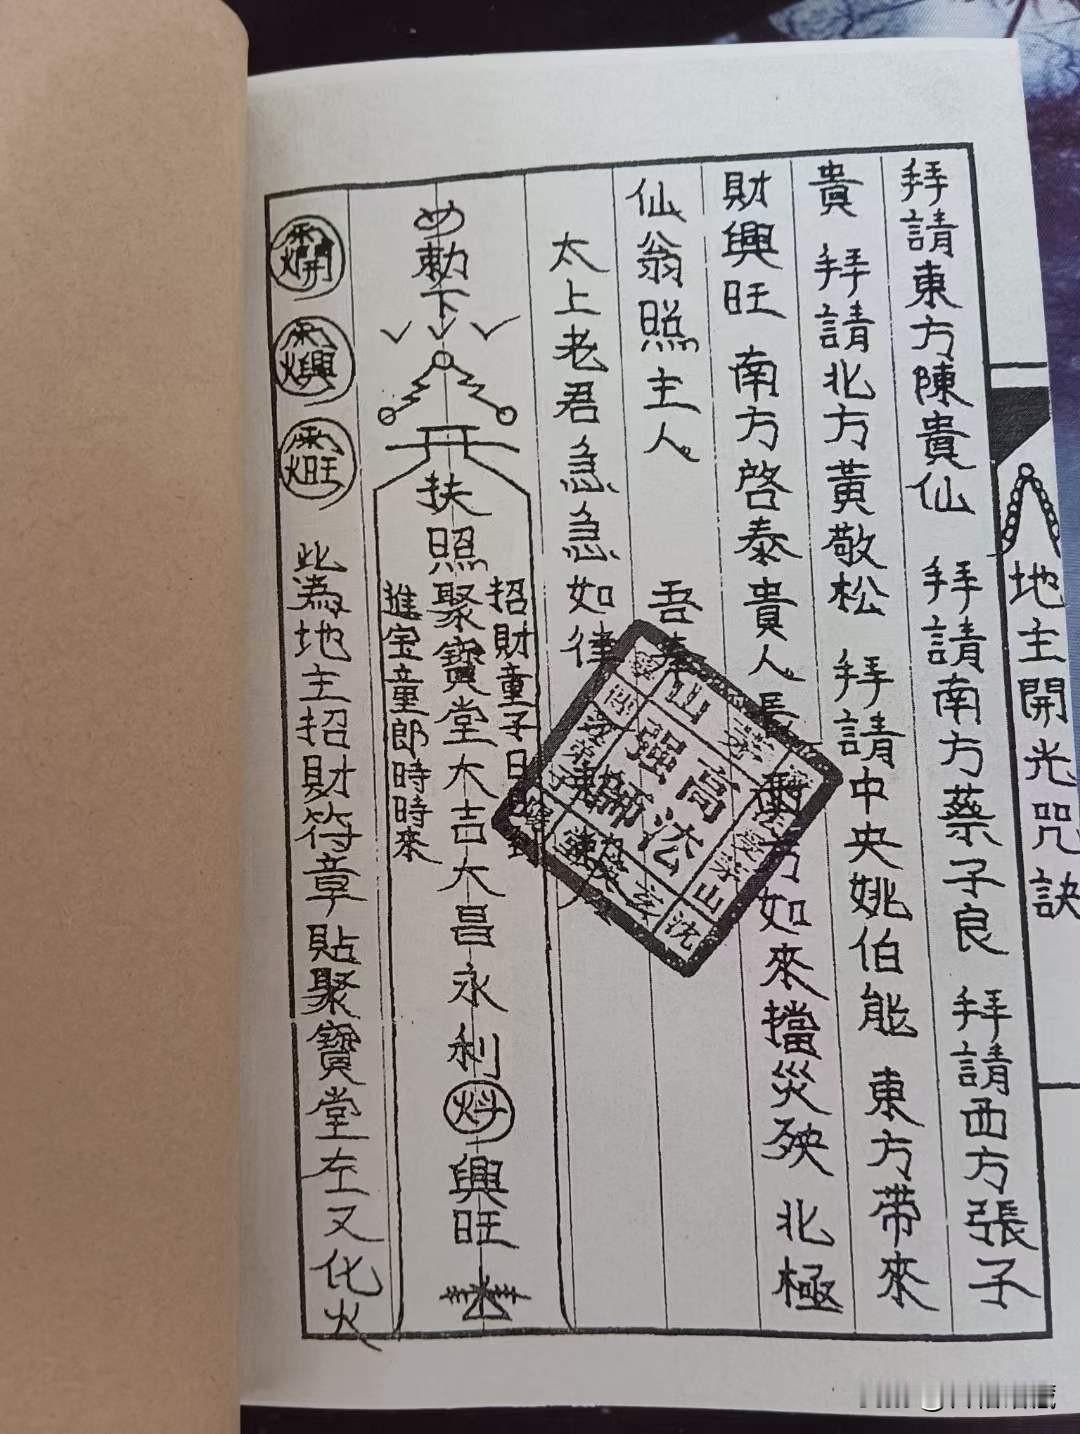 地主開光咒訣
拜請東方陳貴仙 拜請南方蔡子良 拜請西方張子
貴 拜請北方黃敬松 拜請中央姚伯能 東方帶來
財興旺 南方啓泰貴人長 方如來擋災殃 北極
仙翁照主人 吾
太上老君急急如律
勅下
扶照聚寶堂大吉大昌永利
興旺
招財童子日
進宝童郎時時來
此為地主招財符章貼聚寶堂左又化火
高法
強師